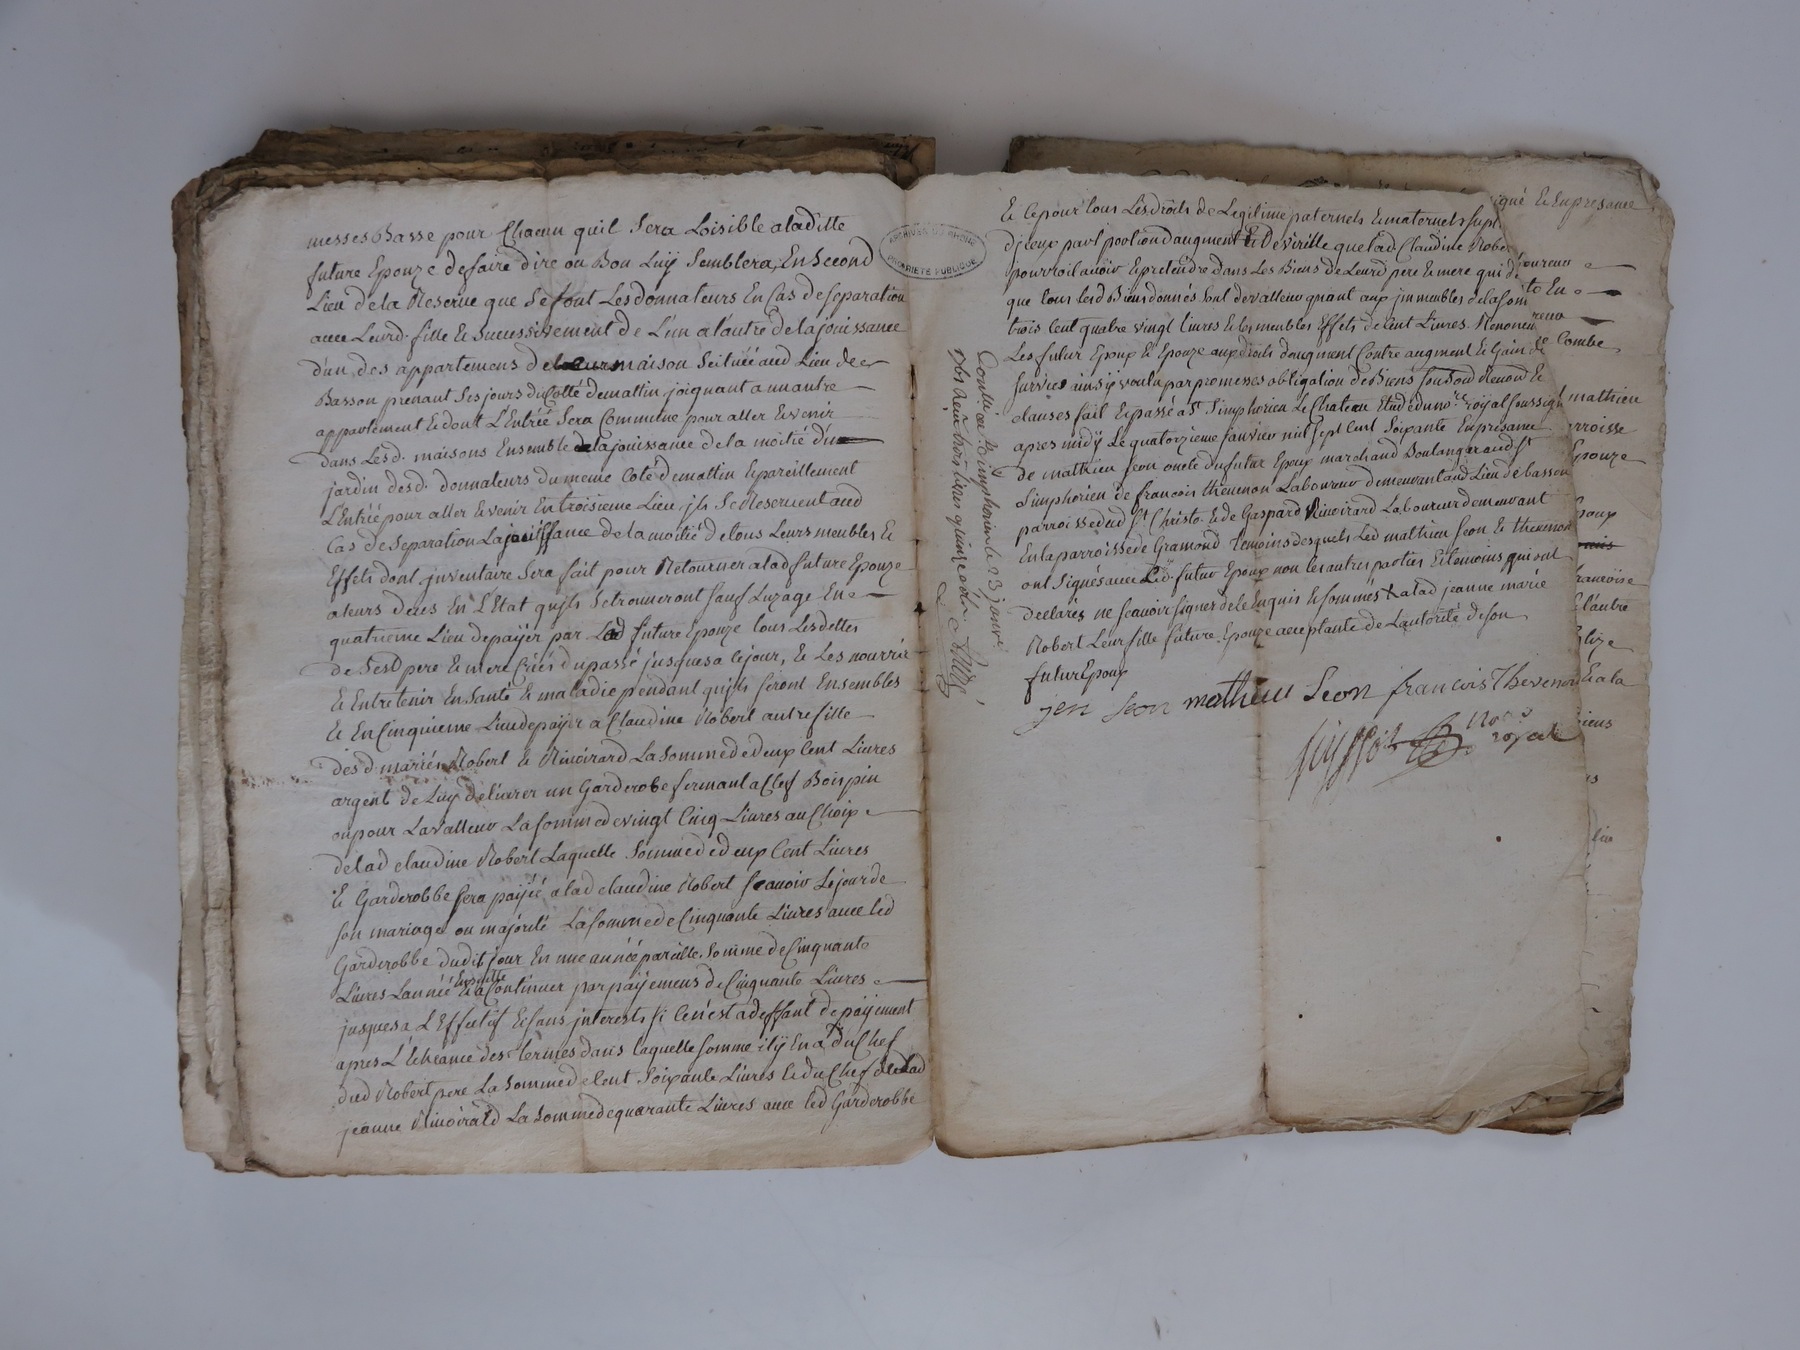 messes Basse pour Chacun quil Sera Loisible aladitte
future Epouze de faire dire ou Bon Luy Semblera, En Second
Lieu de la Reserve que Se font Les donnateurs En Cas de Separation
avec Leurd. fille & Successivement de L'un a l'autre de la jouissance
d'un des appartemens de Leur maison Scituéé aud Lieu de
Basson prenant Ses jours du Cotté de mattin joignant a un autre
appartement & dont L'Entréé Sera Commune pour aller & venir
dans Lesd. maisons Ensemble de la jouissance de la moitié d'un
jardin desd. donnateurs du meme Coté de mattin & pareillement
L'Entréé pour aller & venir En troisieme Lieu jls Se Reservent aud
Cas de Separation La jouissance de la moitié de tous Leurs meubles &
Effets dont jnventaire Sera fait pour Retourner a lad future Epouze
a leurs deces En L'Etat qujls Se trouveront Sauf Luzage En
quatrieme Lieu de payer par Lad future Epouze tous Les dettes
de Sesd pere & mere Créés du passé jusques a Ce jour, & Les nourrir
& Entretenir En Santé & maladie pendant qujls Seront Ensembles
& En Cinquieme Lieu de payer a Claudine Robert autre fille
desd. mariés Robert & Rivoirard La Somme de deux Cent Livres
argent de Luy delivrer un Garderobe fermant a Clef Bois pin
ou pour La valleur La Somme de vingt Cinq Livres au Choix
de lad Claudine Robert Laquelle Somme de deux Cent Livres
& Garderobbe Sera payéé a lad Claudine Robert Scavoir Le jour de
Son mariage ou majorité La Somme de Cinquante Livres avec led
Garderobbe dudit jour En une annéé pareille Somme de Cinquante
Livres Lannéé Ensuitte & a Continuer par payemens de Cinquante Livres
jusques a L'Effectif & sans jnterests Si Ce n'est a deffaut de payement
apres L'Echeance des termes dans laquelle Somme il y En a du Chef
dud Robert pere La Somme de Cent Soixante Livres & du Chef de lad
jeanne Rivoirard La Somme de quarante Livres avec led Garderobbe
ARCHIVES DU RHONE
PROPRIÉTÉ PUBLIQUE
& Ce pour tous Les droits de Legitime paternels & maternels Supl
d'jceux part portion d'augment & De virille que lad. Claudine Rober
pourroit avoir & pretendre dans Les Biens de Leurd pere & mere qui d
que tous lesd Biens donnés Sont de valleur quant aux jmmeubles de la Som
trois Cent quatre vingt Livres & les meubles Effets de Cent Livres Renoncen
Les futur Epoux & Epouze aux droits d'augment Contre augment & Gain de
Survie ainsy voulu par promesses obligation de Biens Soud Renond &
clauses fait & passé a St. Simphorien Le Chateau Etude du nore. royal Soussigné
apres midy Le quatorzieme janvier mil Sept Cent Soixante En presance
de mathieu Seon oncle du futur Epoux marchand Boulanger aud St
Simphorien de francois thevenon Laboureur demeurant aud Lieu de basson
parroisse dud St Christo. & de Gaspard Rivoirard Laboureur demeurant
En la parroisse de Gramond temoins desquels Led mathieu Seon & thevenon
ont Signés avec Led. futur Epoux non les autres parties & temoins qui ont
declarés ne Scavoir Signer de Ce Enquis & Sommés & a lad jeanne marie
Robert Leur fille future Epouze acceptante de L'autorité de Son
futur Epoux
jen Seon mathieu Seon francois Thevenon
Nore royal
Contllé a St Simphorien le 23 janvr
1760 Reçu trois livres quinze sols
igné & En presance
oureur
te En
reno
Combe
mathieu
rroisse
Epouze
Epoux
francoise
L'autre
Eglize
& a la
Biens